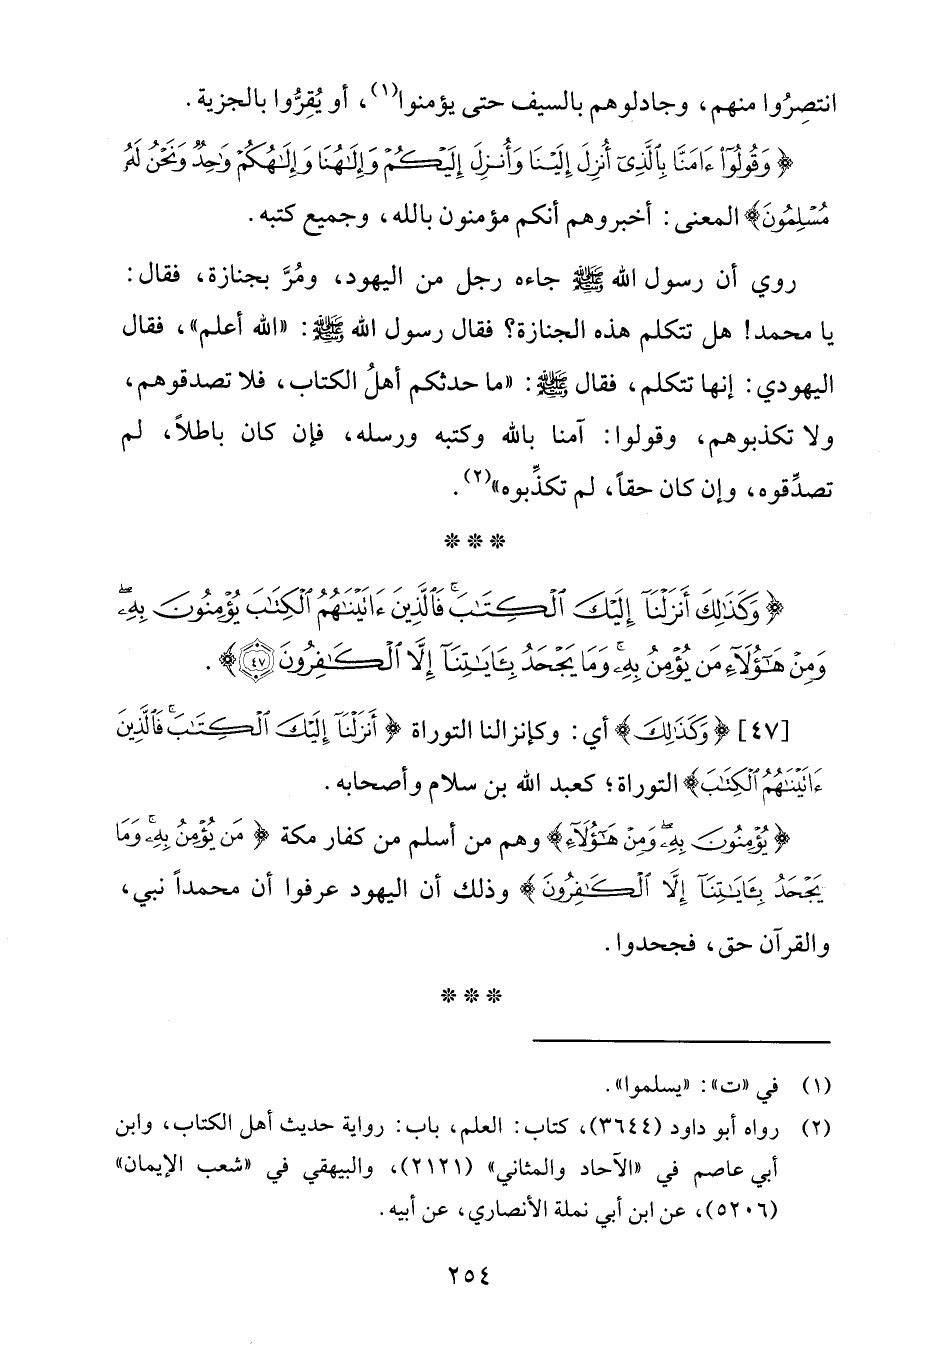 انتصِرُوا منهم، وجادلوهم بالسيف حتى يؤمنوا(١)، أو يُقِرُّوا بالجزية.
﴿وَقُولُوٓا۟ ءَامَنَّا بِٱلَّذِىٓ أُنزِلَ إِلَيْنَا وَأُنزِلَ إِلَيْكُمْ وَإِلَٰهُنَا وَإِلَٰهُكُمْ وَٰحِدٌ وَنَحْنُ لَهُۥ
مُسْلِمُونَ﴾ المعنى: أخبروهم أنكم مؤمنون بالله، وجميع كتبه.
روي أن رسول الله ﷺ جاءه رجل من اليهود، ومُرَّ بجنازة، فقال:
يا محمد! هل تتكلم هذه الجنازة؟ فقال رسول الله ﷺ: «الله أعلم»، فقال
اليهودي: إنها تتكلم، فقال ﷺ: «ما حدثكم أهلُ الكتاب، فلا تصدقوهم،
ولا تكذبوهم، وقولوا: آمنا بالله وكتبه ورسله، فإن كان باطلاً، لم
تصدِّقوه، وإن كان حقاً، لم تكذِّبوه»(٢).
* * *
﴿وَكَذَٰلِكَ أَنزَلْنَآ إِلَيْكَ ٱلْكِتَٰبَ ۚ فَٱلَّذِينَ ءَاتَيْنَٰهُمُ ٱلْكِتَٰبَ يُؤْمِنُونَ بِهِۦ ۖ
وَمِنْ هَٰٓؤُلَآءِ مَن يُؤْمِنُ بِهِۦ ۚ وَمَا يَجْحَدُ بِـَٔايَٰتِنَآ إِلَّا ٱلْكَٰفِرُونَ ٤٧﴾.
[٤٧] ﴿وَكَذَٰلِكَ﴾ أي: وكإنزالنا التوراة ﴿أَنزَلْنَآ إِلَيْكَ ٱلْكِتَٰبَ ۚ فَٱلَّذِينَ
ءَاتَيْنَٰهُمُ ٱلْكِتَٰبَ﴾ التوراة؛ كعبد الله بن سلام وأصحابه.
﴿يُؤْمِنُونَ بِهِۦ ۖ وَمِنْ هَٰٓؤُلَآءِ﴾ وهم من أسلم من كفار مكة ﴿مَن يُؤْمِنُ بِهِۦ ۚ وَمَا
يَجْحَدُ بِـَٔايَٰتِنَآ إِلَّا ٱلْكَٰفِرُونَ﴾ وذلك أن اليهود عرفوا أن محمداً نبي،
والقرآن حق، فجحدوا.
* * *
(١) في «ت»: «يسلموا».
(٢) رواه أبو داود (٣٦٤٤)، كتاب: العلم، باب: رواية حديث أهل الكتاب، وابن
أبي عاصم في «الآحاد والمثاني» (٢١٢١)، والبيهقي في «شعب الإيمان»
(٥٢٠٦)، عن ابن أبي نملة الأنصاري، عن أبيه.
٢٥٤